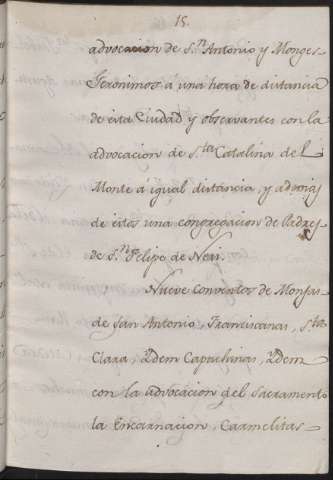 15.
advocacion de S.n Antonio y Monges
Geronimos a una hora de distancia
de esta Ciudad y observantes con la
advocacion de S.ta Catalina del
Monte a igual distancia, y ademas
de estos una congregacion de Padres
de S.n Felipe de Neri.
Nueve Conventos de Monjas
de San Antonio, Franciscanas, S.ta
Clara, Ydem Capuchinas, Ydem
con la advocacion del Sacramento
la Encarnacion, Carmelitas